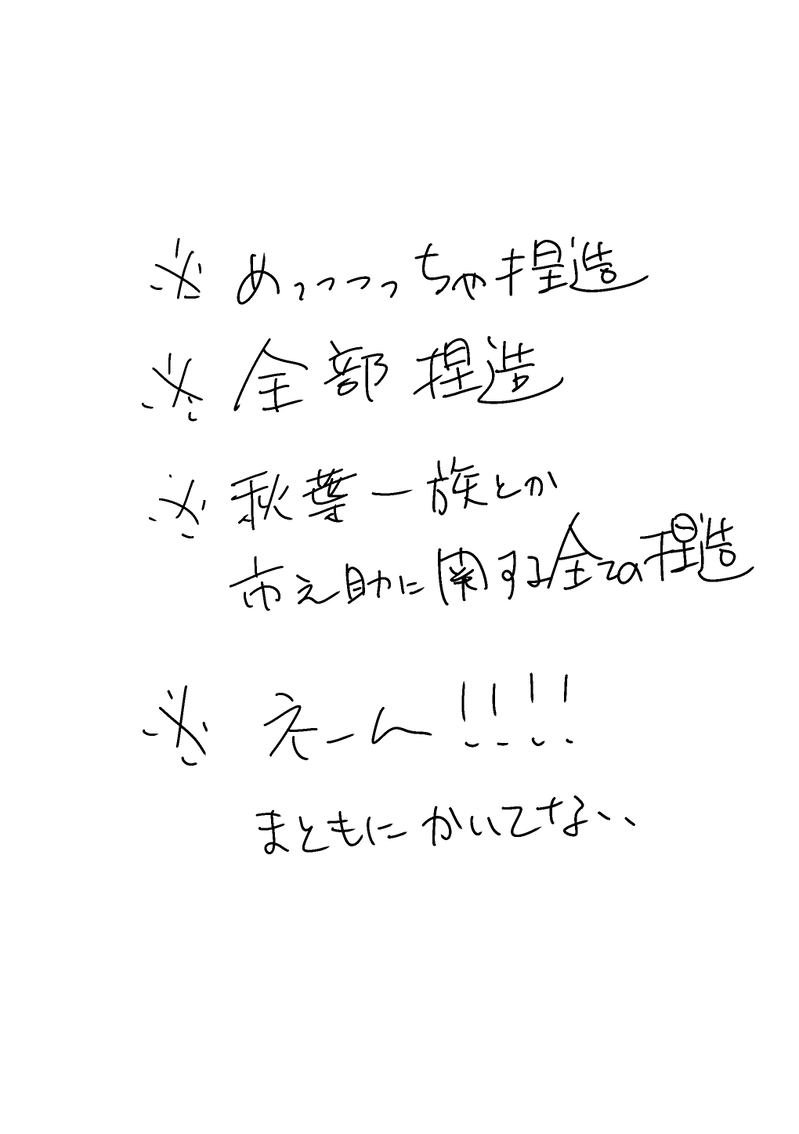 ※めっっっっちゃ捏造
※全部捏造
※秋葉一族とか
市之助に関する全ての捏造
※えーん!!!!
まともにかいてない